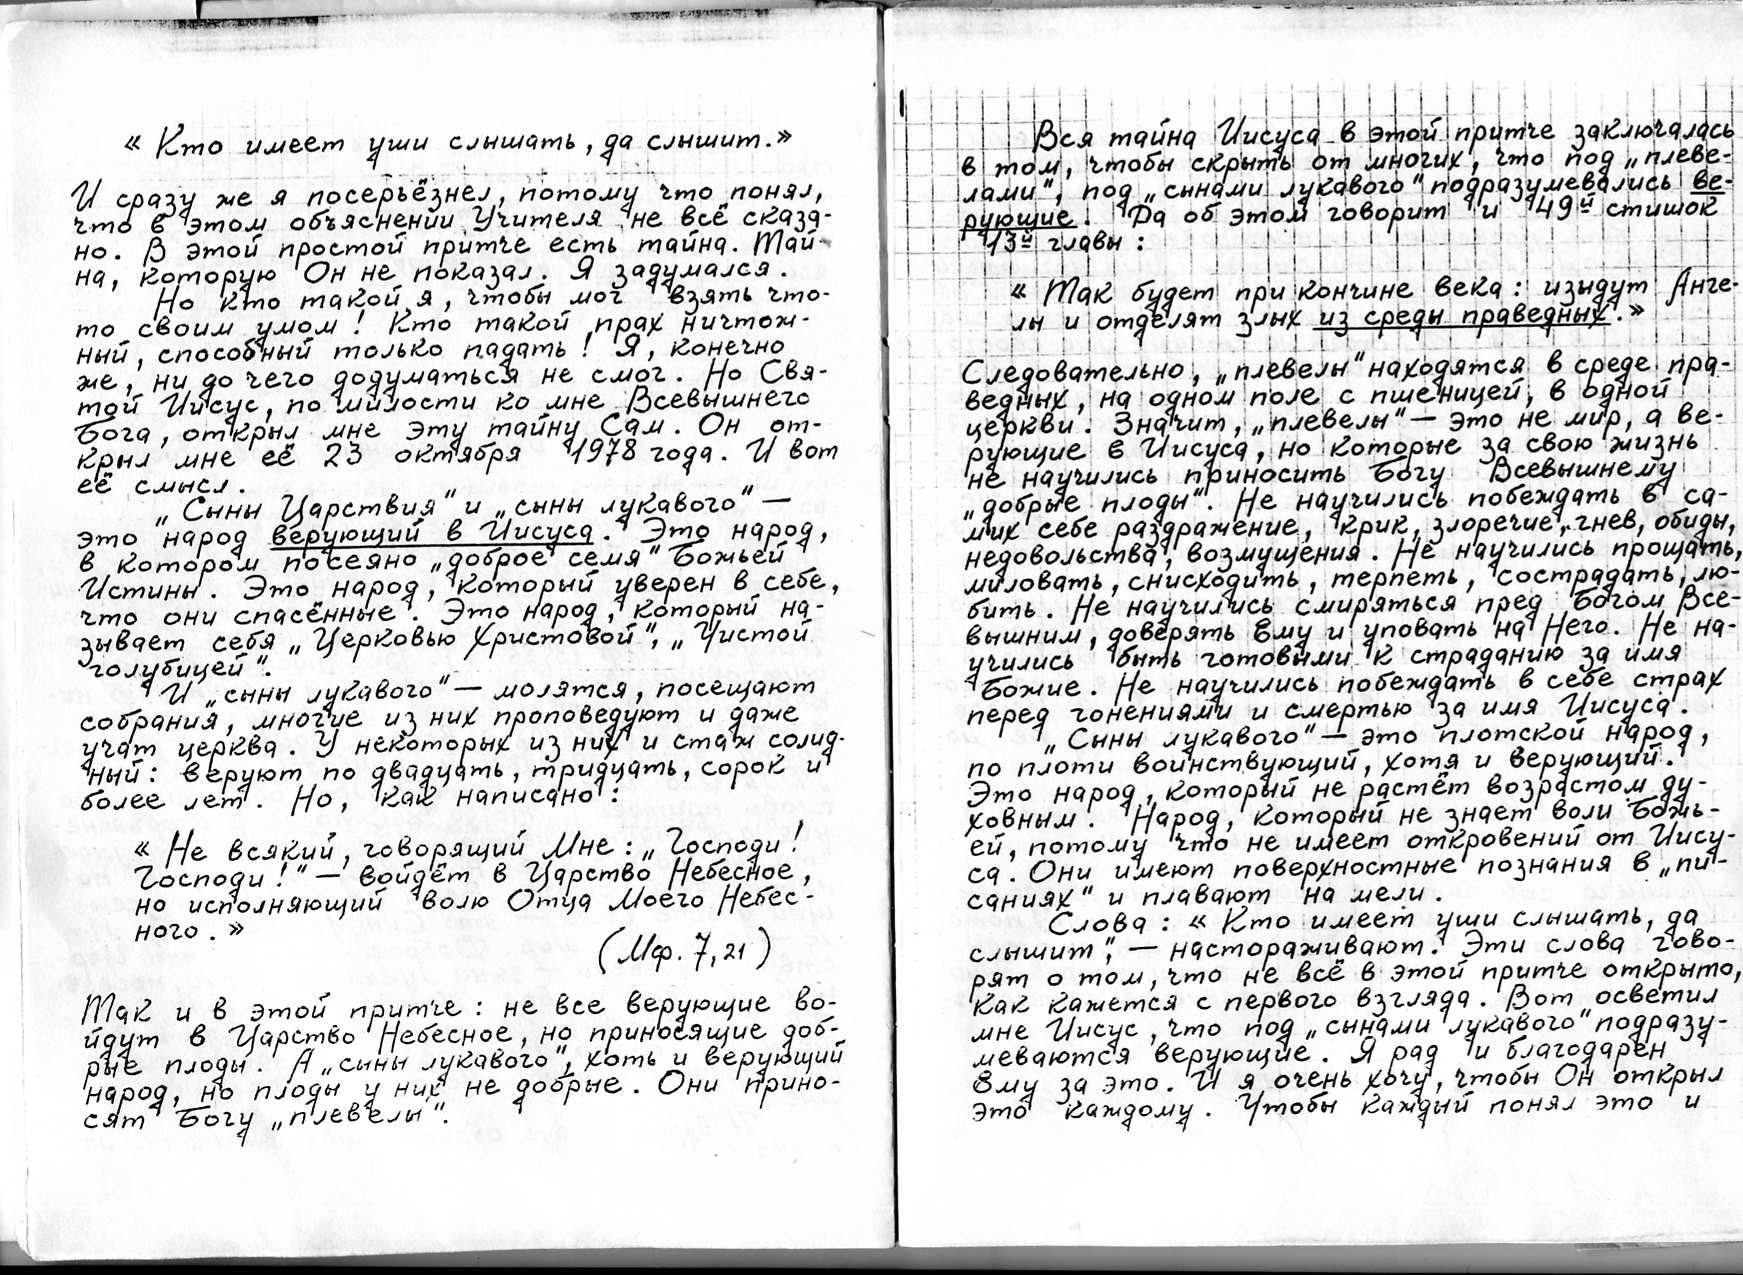 « Кто имеет уши слышать, да слышит.»
И сразу же я посерьёзнел, потому что понял,
что в этом объяснении Учителя не всё сказа-
но. В этой простой притче есть тайна. Тай-
на, которую Он не показал. Я задумался.
Но кто такой я, чтобы мог взять что-
то своим умом! Кто такой прах ничтож-
ный, способный только падать! Я, конечно
же, ни до чего додуматься не смог. Но Свя-
той Иисус, по милости ко мне Всевышнего
Бога, открыл мне эту тайну Сам. Он от-
крыл мне её 23 октября 1978 года. И вот
её смысл.
„Сыны Царствия" и „сыны лукавого" —
это народ верующий в Иисуса. Это народ,
в котором посеяно „доброе семя" Божьей
Истины. Это народ, который уверен в себе,
что они спасённые. Это народ, который на-
зывает себя „Церковью Христовой", „Чистой
голубицей".
И „сыны лукавого" — молятся, посещают
собрания, многие из них проповедуют и даже
учат церква. У некоторых из них и стаж солид-
ный: веруют по двадцать, тридцать, сорок и
более лет. Но, как написано:
« Не всякий, говорящий Мне: „Господи!
Господи!" — войдёт в Царство Небесное,
но исполняющий волю Отца Моего Небес-
ного.»
(Мф. 7, 21)
Так и в этой притче: не все верующие во-
йдут в Царство Небесное, но приносящие доб-
рые плоды. А „сыны лукавого", хоть и верующий
народ, но плоды у них не добрые. Они прино-
сят Богу „плевелы".
Вся тайна Иисуса в этой притче заключалась
в том, чтобы скрыть от многих, что под „плеве-
лами", под „сынами лукавого" подразумевались ве-
рующие. Да об этом говорит и 49й стишок
13й главы:
« Так будет при кончине века: изыдут Анге-
лы и отделят злых из среды праведных.»
Следовательно, „плевелы" находятся в среде пра-
ведных, на одном поле с пшеницей, в одной
церкви. Значит, „плевелы" — это не мир, а ве-
рующие в Иисуса, но которые за свою жизнь
не научились приносить Богу Всевышнему
„добрые плоды". Не научились побеждать в са-
мих себе раздражение, крик, злоречие, гнев, обиды,
недовольства, возмущения. Не научились прощать,
миловать, снисходить, терпеть, сострадать, лю-
бить. Не научились смиряться пред Богом Все-
вышним, доверять Ему и уповать на Него. Не на-
учились быть готовыми к страданию за имя
Божие. Не научились побеждать в себе страх
перед гонениями и смертью за имя Иисуса.
„Сыны лукавого" — это плотской народ,
по плоти воинствующий, хотя и верующий.
Это народ, который не растёт возрастом ду-
ховным. Народ, который не знает воли Божь-
ей, потому что не имеет откровений от Иису-
са. Они имеют поверхностные познания в „пи-
саниях" и плавают на мели.
Слова: « Кто имеет уши слышать, да
слышит", — настораживают. Эти слова гово-
рят о том, что не всё в этой притче открыто,
как кажется с первого взгляда. Вот осветил
мне Иисус, что под „сынами лукавого" подразу-
меваются верующие. Я рад и благодарен
Ему за это. И я очень хочу, чтобы Он открыл
это каждому. Чтобы каждый понял это и